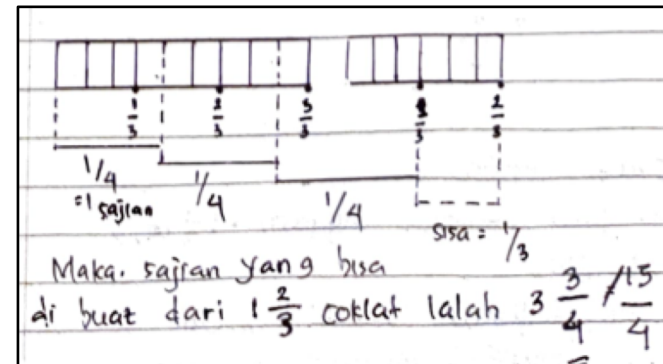 1/3 2/3 3/3 1/3 2/3
1/4 1/4 1/4 sisa = 1/3
=1 sajian
Maka. sajian yang bisa
di buat dari 1 2/3 coklat ialah 3 3/4 / 15/4